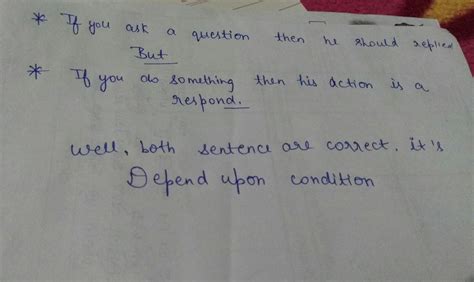 * If you ask a question then he should replied
But
* If you do something then his action is a
respond.
well, both sentence are correct. it's
Depend upon condition